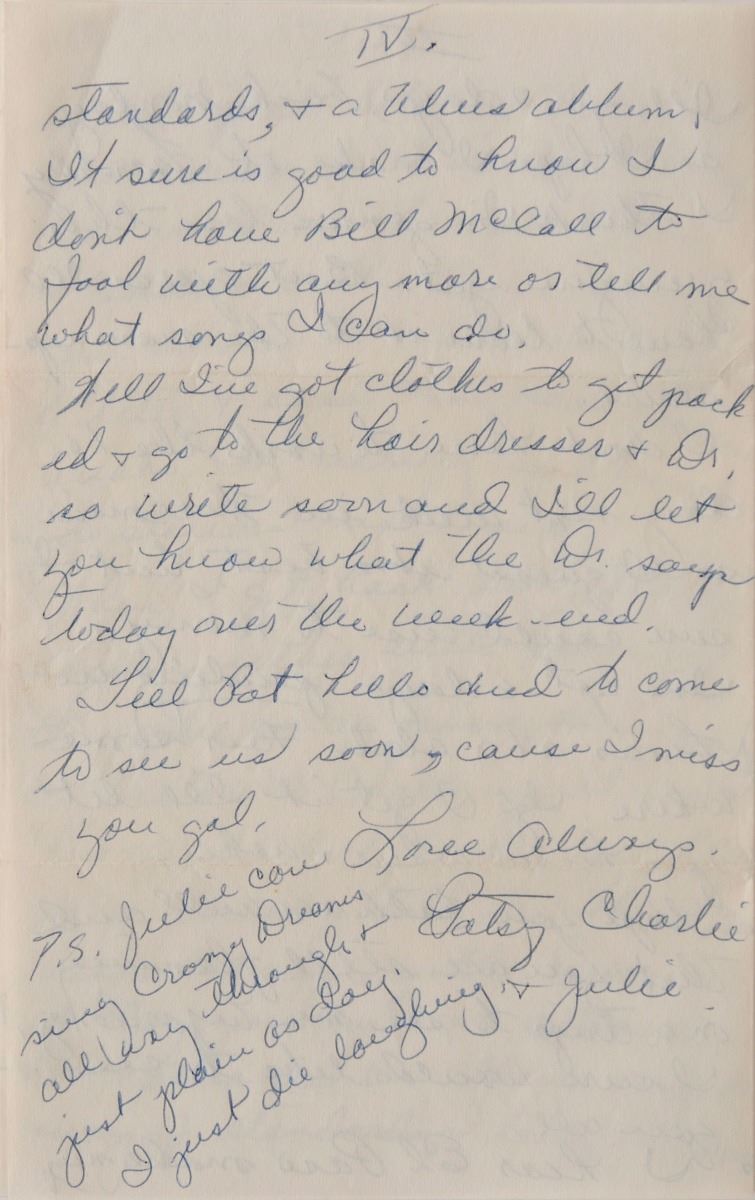 IV.
standards, + a blues ablum.
It sure is good to know I
don't have Bill McCall to
fool with any more or tell me
what songs I can do.
Well I've got clothes to get pack
ed + go to the hair dresser + Dr.
so write soon and I'll let
you know what the Dr. says
today over the week-end.
Tell Pat hello and to come
to see us soon, cause I miss
you gal.
Love Always.
Patsy Charlie
+ Julie
P.S. Julie can
sing Crazy Dreams
all way through +
just plain as day.
I just die laughing.